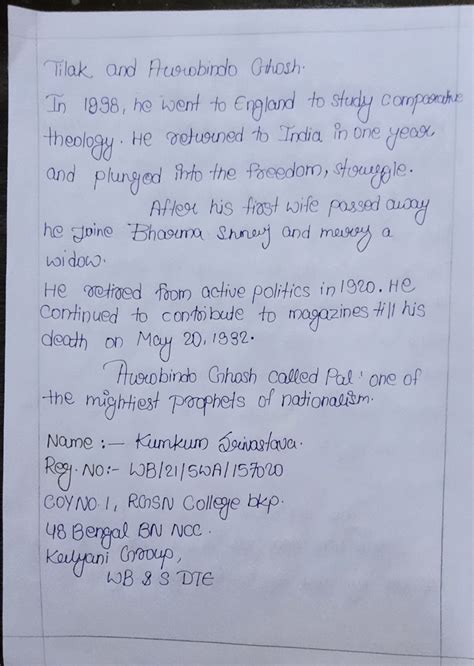 Tilak and Aurobindo Ghosh.
In 1898, he went to England to study comparative
theology. He returned to India in one year
and plunged into the freedom, struggle.
After his first wife passed away
he joine Bharma and merry a
widow.
He retired from active politics in 1920. He
Continued to contribute to magazines till his
death on May 20, 1932.
Aurobindo Ghosh called Pal 'one of
the mightiest prophets of nationalism.
Name :- Kumkum Srivastava.
Reg. NO:- WB/21/SWA/157020
COY NO. 1, RGSN College bkp.
48 Bengal BN NCC.
Kalyani Group,
WB & S DTE